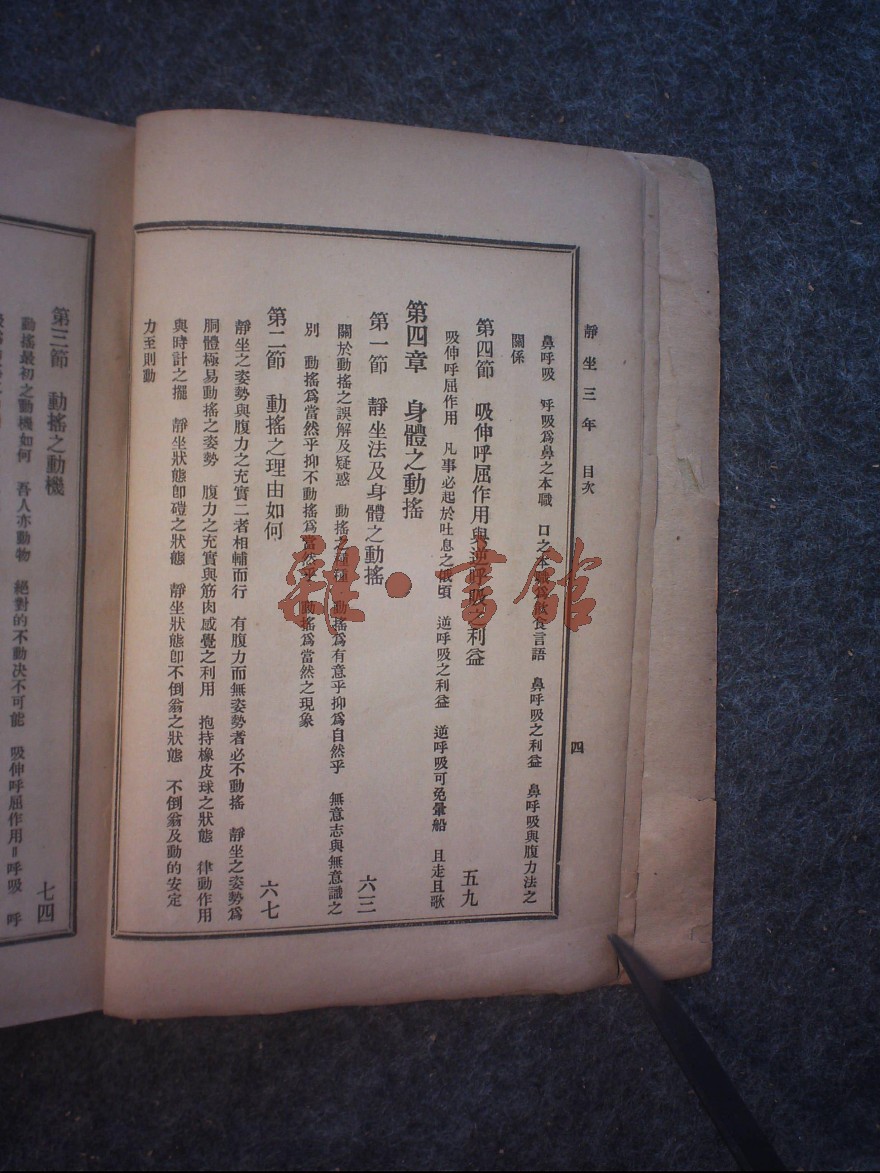 靜坐三年 目次 四
鼻呼吸 呼吸爲鼻之本職 口之本職爲飲食言語 鼻呼吸之利益 鼻呼吸與腹力法之
關係
第四節 吸伸呼屈作用與逆呼吸之利益 五九
吸伸呼屈作用 凡事必起於吐息之俄頃 逆呼吸之利益 逆呼吸可免暈船 且走且歌
第四章 身體之動搖
第一節 靜坐法及身體之動搖 六三
關於動搖之誤解及疑惑 動搖之種種 動搖爲有意乎抑爲自然乎 無意志與無意識之
別 動搖爲當然乎抑不動搖爲當然乎 動搖爲當然之現象
第二節 動搖之理由如何 六七
靜坐之姿勢與腹力之充實二者相輔而行 有腹力而無姿勢者必不動搖 靜坐之姿勢爲
胴體極易動搖之姿勢 腹力之充實與筋肉感覺之利用 抱持橡皮球之狀態 律動作用
與時計之擺 靜坐狀態卽磑之狀態 靜坐狀態卽不倒翁之狀態 不倒翁及動的安定
力至則動
第三節 動搖之動機 七四
動搖最初之動機如何 吾人亦動物 絕對的不動決不可能 吸伸呼屈作用=呼吸 呼
雜·書館